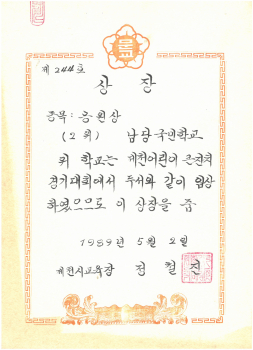 제 244호
상 장
종목: 응원상
(2위) 남당국민학교
위 학교는 제천어린이 큰잔치
경기대회에서 두서와 같이 입상
하였으므로 이 상장을 줌
1989년 5월 2일
제천시교육장 정 철